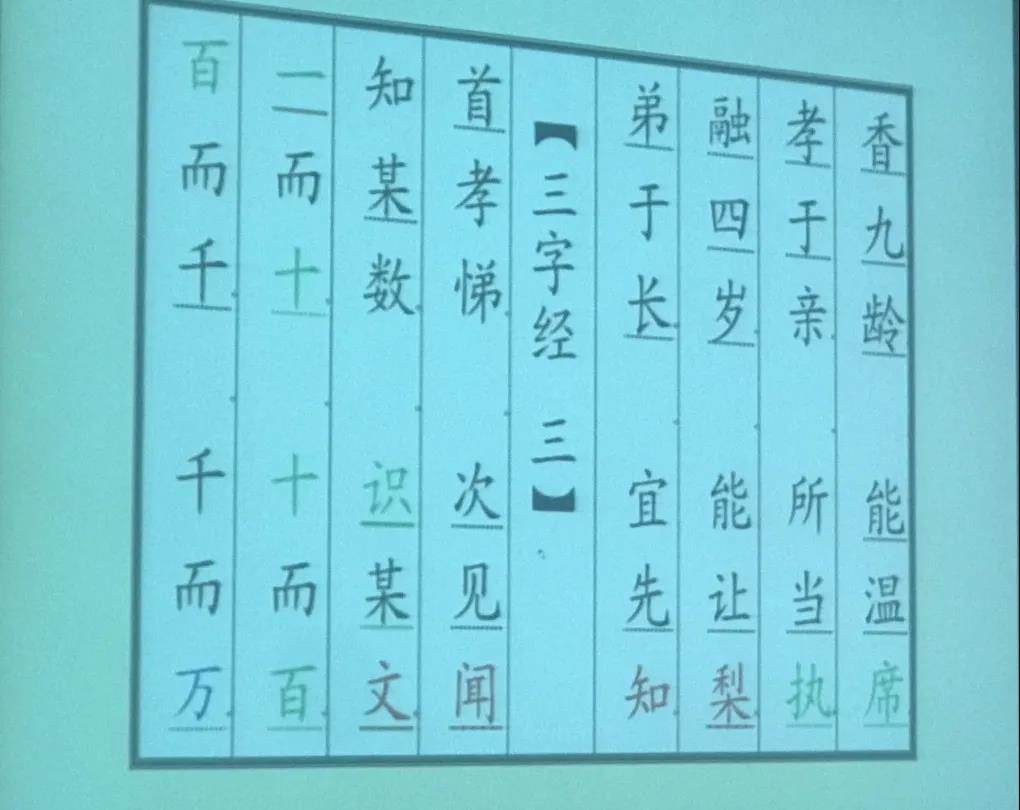 香九龄 能温席
孝于亲 所当执
融四岁 能让梨
弟于长 宜先知
【三字经 三】
首孝悌 次见闻
知某数 识某文
一而十 十而百
百而千 千而万